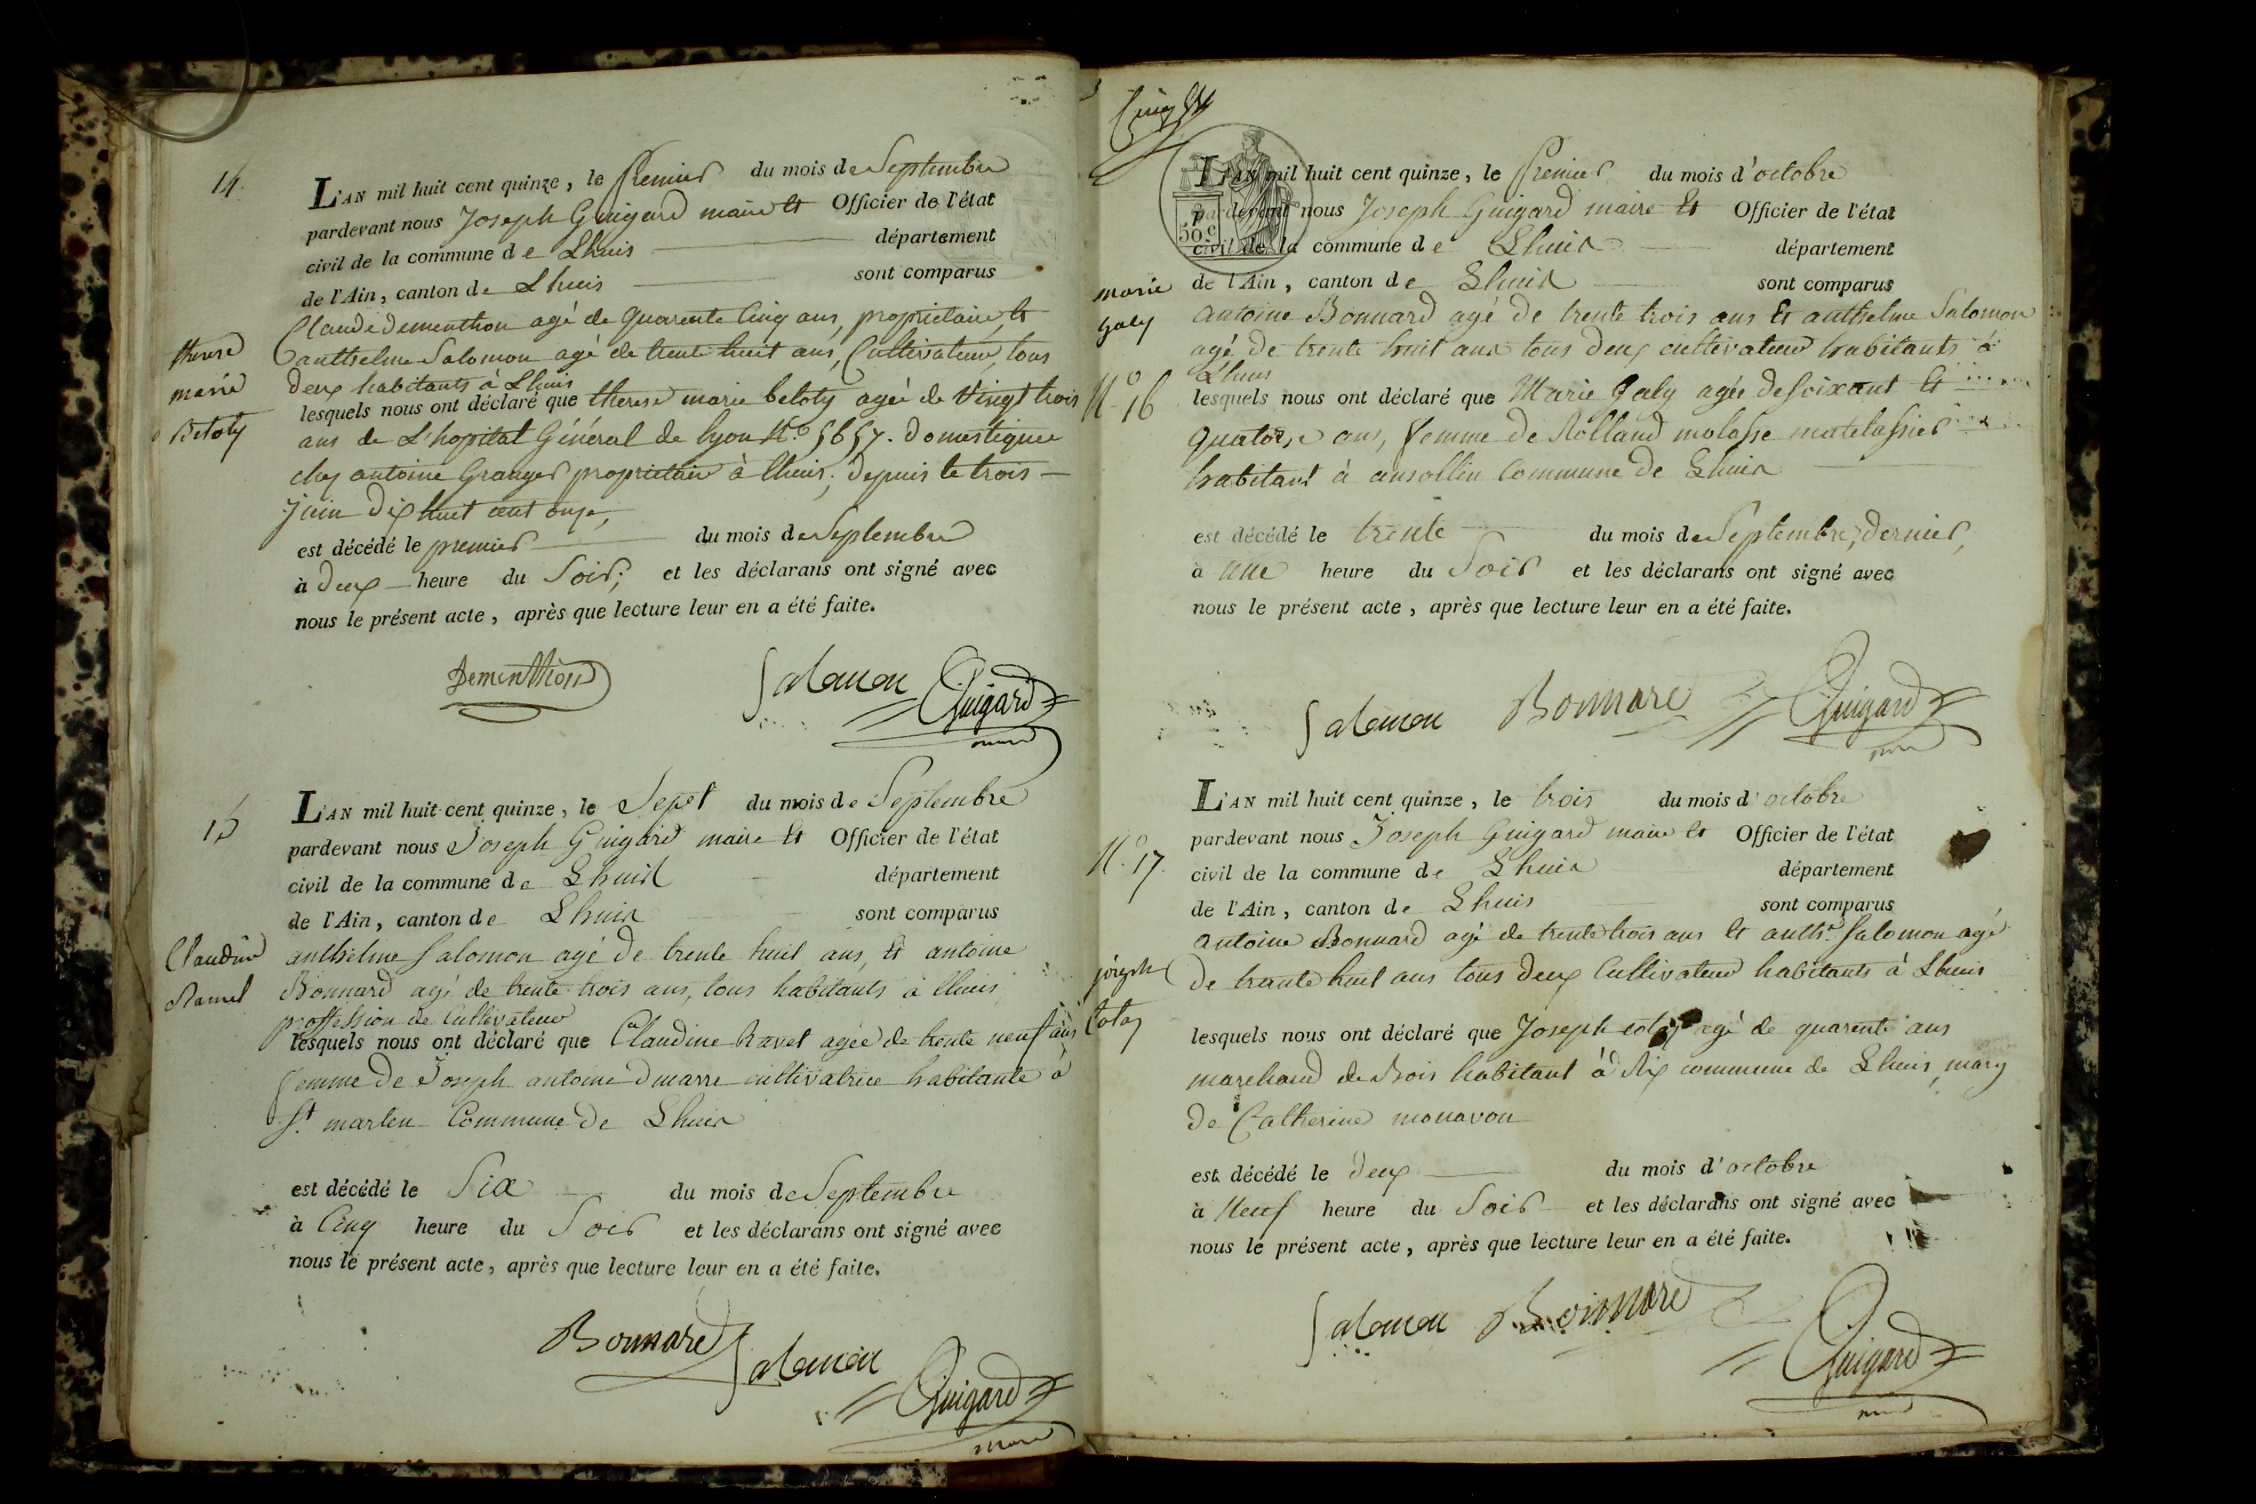 14.
L'AN mil huit cent quinze, le Premier du mois de Septembre
pardevant nous Joseph Guigard maire et Officier de l'état
civil de la commune de Lhuis département
de l'Ain, canton de Lhuis sont comparus
Claude dementhon agé de quarente Cinq ans, proprietaire, et
anthelme Salomon agé de trente huit ans, Cultivateur, tous
deux habitants à Lhuis
therese
marie
Betoty
lesquels nous ont déclaré que therese marie betoty agée de vingt trois
ans de L'hopital Général de lyon N.o 5657. domestique
chez antoine Granger proprietaire à lhuis; depuis le trois
juin dix huit cent onze,
est décédé le premier du mois de Septembre
à deux heure du Soir; et les déclarans ont signé avec
nous le présent acte, après que lecture leur en a été faite.
Dementhon Salomon Guigard
maire
15
L'AN mil huit cent quinze, le Sept du mois de Septembre
pardevant nous Joseph Guigard maire et Officier de l'état
civil de la commune de Lhuis département
de l'Ain, canton de Lhuis sont comparus
Claudine
anthelme Salomon agé de trente huit ans, et antoine
Bonnard agé de trente trois ans, tous habitants à lhuis
proffession de Cultivateur
lesquels nous ont déclaré que Claudine Ravet agée de trente neuf ans
femme de Joseph antoine cultivatrice habitante à
St. Commune de Lhuis
est décédé le Six du mois de Septembre
à Cinq heure du Soir et les déclarans ont signé avec
nous le présent acte, après que lecture leur en a été faite.
Bonnard Salomon Guigard
maire
Cinq
50.c
L'AN mil huit cent quinze, le Premier du mois d'octobre
pardevant nous Joseph Guigard maire et Officier de l'état
civil de la commune de Lhuis département
de l'Ain, canton de Lhuis sont comparus
marie
galy
N.o 16
antoine Bonnard agé de trente trois ans et anthelme Salomon
agé de trente huit ans tous deux cultivateur habitants à
Lhuis
lesquels nous ont déclaré que Marie Galy agée de soixant et
quatorze ans, femme de Rolland molasse matelassier
habitant à ansollin Commune de Lhuis
est décédé le trente du mois de Septembre, dernier,
à une heure du Soir et les déclarans ont signé avec
nous le présent acte, après que lecture leur en a été faite.
Salomon Bonnard Guigard
maire
N.o 17.
L'AN mil huit cent quinze, le trois du mois d'octobre
pardevant nous Joseph Guigard maire et Officier de l'état
civil de la commune de Lhuis département
de l'Ain, canton de Lhuis sont comparus
joseph
Cotaz
antoine Bonnard agé de trente trois ans et anth.e Salomon agé
de trante huit ans tous deux Cultivateur habitants à Lhuis
lesquels nous ont déclaré que Joseph cotaz agé de quarente ans
marchand de Bois habitant à Rix commune de Lhuis, mary
de Catherine monavon
est décédé le deux du mois d'octobre
à Neuf heure du Soir et les déclarans ont signé avec
nous le présent acte, après que lecture leur en a été faite.
Salomon Bonnard Guigard
maire